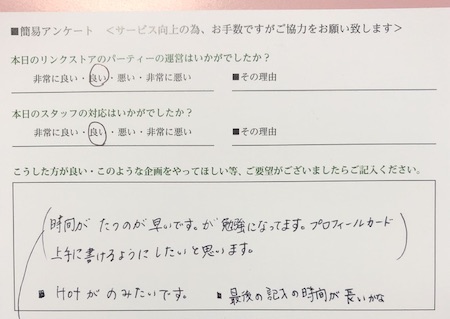 ■簡易アンケート　＜サービス向上の為、お手数ですがご協力をお願い致します＞
本日のリンクストアのパーティーの運営はいかがでしたか？
非常に良い・良い・悪い・非常に悪い　■その理由
本日のスタッフの対応はいかがでしたか？
非常に良い・良い・悪い・非常に悪い　■その理由
こうした方が良い・このような企画をやってほしい等、ご要望がございましたらご記入ください。
時間が たつのが 早いです。が 勉強になってます。プロフィールカード
上手に書けるようにしたいと思います。
■ Hotが のみたいです。　■ 最後の記入の時間が 長いかな